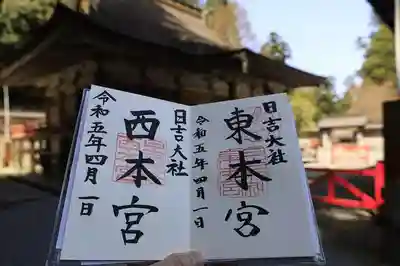 日吉大社
東本宮
令和五年四月一日
日吉大社
西本宮
令和五年四月一日